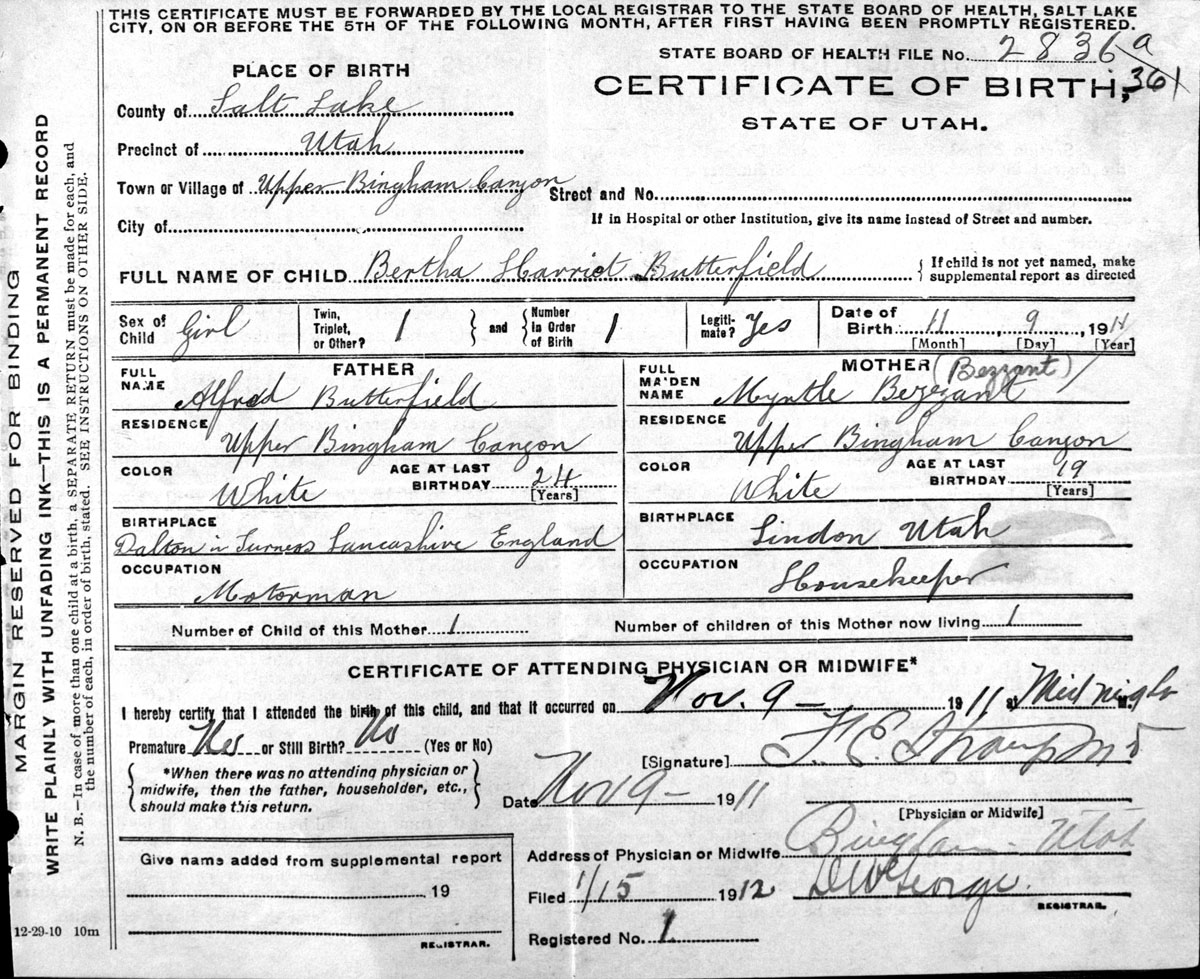 THIS CERTIFICATE MUST BE FORWARDED BY THE LOCAL REGISTRAR TO THE STATE BOARD OF HEALTH, SALT LAKE
CITY, ON OR BEFORE THE 5TH OF THE FOLLOWING MONTH, AFTER FIRST HAVING BEEN PROMPTLY REGISTERED.
STATE BOARD OF HEALTH FILE No. 2836 a
361
PLACE OF BIRTH
CERTIFICATE OF BIRTH,
STATE OF UTAH.
County of Salt Lake
Precinct of Utah
Town or Village of Upper Bingham Canyon Street and No.
City of
If in Hospital or other Institution, give its name instead of Street and number.
FULL NAME OF CHILD Bertha Harriet Butterfield { If child is not yet named, make
supplemental report as directed
Sex of Child Girl
Twin, Triplet, or Other? 1 } and { Number in Order of Birth 1
Legiti-mate? Yes
Date of Birth 11 9, 1911
[Month] [Day] [Year]
FATHER
FULL NAME Alfred Butterfield
RESIDENCE Upper Bingham Canyon
COLOR White
AGE AT LAST BIRTHDAY 24
[Years]
BIRTHPLACE
Dalton in Furness Lancashire England
OCCUPATION
Motorman
MOTHER (Bezzant)
FULL MAIDEN NAME Myrtle Bezezant
RESIDENCE Upper Bingham Canyon
COLOR White
AGE AT LAST BIRTHDAY 19
[Years]
BIRTHPLACE Lindon Utah
OCCUPATION Housekeeper
Number of Child of this Mother 1
Number of children of this Mother now living 1
CERTIFICATE OF ATTENDING PHYSICIAN OR MIDWIFE*
I hereby certify that I attended the birth of this child, and that it occurred on Nov. 9 - 1911 at Midnight M.
Premature Yes or Still Birth? No (Yes or No)
{ *When there was no attending physician or
midwife, then the father, householder, etc.,
should make this return. }
[Signature] F. E. Straup
Date Nov 9 - 1911
[Physician or Midwife]
Give name added from supplemental report
19
REGISTRAR.
Address of Physician or Midwife Bingham - Utah
Filed 1/15 1912 George.
REGISTRAR.
Registered No. 1
12-29-10 10m
MARGIN RESERVED FOR BINDING
WRITE PLAINLY WITH UNFADING INK—THIS IS A PERMANENT RECORD
N. B.—In case of more than one child at a birth, a SEPARATE RETURN must be made for each, and
the number of each, in order of birth, stated. SEE INSTRUCTIONS ON OTHER SIDE.